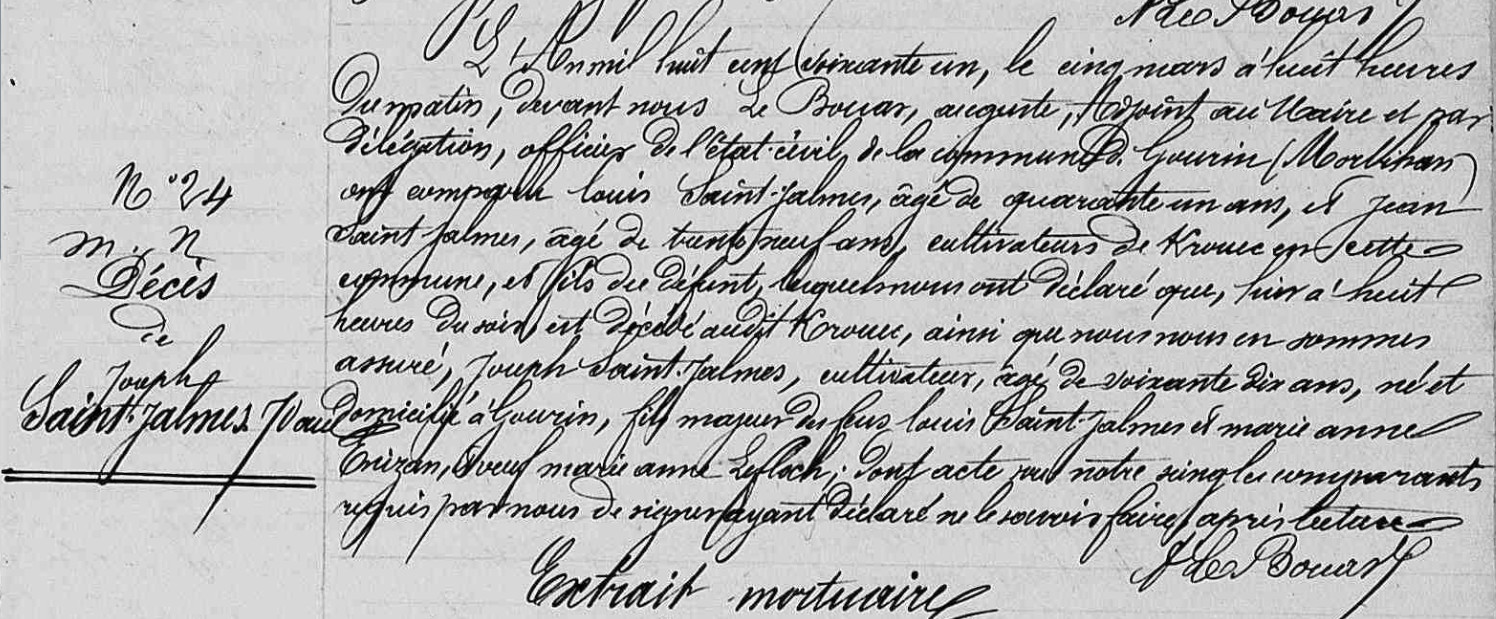 A Le Bouar
L'An mil huit cent soixante un, le cinq mars à huit heures
Du matin, devant nous Le Bouar, auguste, Adjoint au Maire et par
délégation, officier de l'état civil, de la commune de Gourin (Morbihan)
ont comparu louis Saint-Jalmes, âgé de quarante un ans, et Jean
Saint Jalmes, âgé de trente neuf ans, cultivateurs de Krouec en cette
commune, et fils du défunt, lesquels nous ont déclaré que, hier à huit
heures du soir est décédé audit Krouec, ainsi que nous nous en sommes
assuré, Joseph Saint-Jalmes, cultivateur, âgé de soixante dix ans, né et
domicilié à Gourin, fils majeur des feus louis Saint-Jalmes et marie anne
Enizan, veuf marie anne Lefloch; dont acte sous notre seing les comparants
requis par nous de signer ayant déclaré ne le savoir faire, après lecture
A Le Bouar
N° 24
M. N
Décès
de
Joseph
Saint-Jalmes
Extrait mortuaire